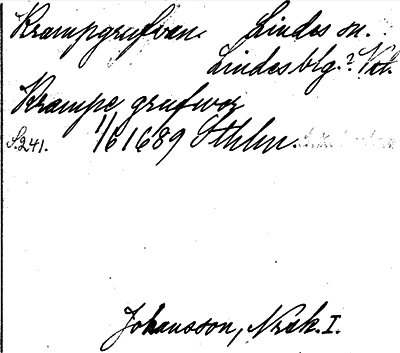 Krampgrufvan. Lindes sn.
Lindesblg.? Vstm.
Krampe grufwor
S.241. 1/6 1689 Sthlm.
Johansson, Norsk. I.